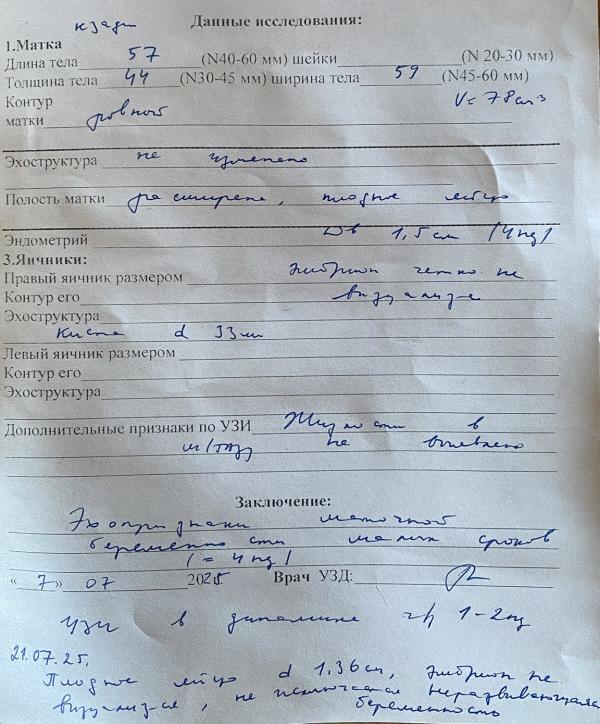 кзади Данные исследования:
1.Матка
Длина тела 57 (N40-60 мм) шейки (N 20-30 мм)
Толщина тела 44 (N30-45 мм) ширина тела 59 (N45-60 мм)
Контур V= 78см3
матки ровной
Эхоструктура не изменено
Полость матки расширена, плодное яйцо
Эндометрий 1,5 см (4нд)
3.Яичники:
Правый яичник размером эмбрион четко не
Контур его визуализе
Эхоструктура
Киста d 33мм
Левый яичник размером
Контур его
Эхоструктура
Дополнительные признаки по УЗИ Жидкости в
м/тазу не выявлено
Заключение:
Эхопризнаки маточной
беременности малых сроков
(= 4нд)
«7» 07 2025г. Врач УЗД:
УЗИ в динамике ч/з 1-2нд
21.07.25.
Плодное яйцо d 1,36см, эмбрион не
визуализе, не исключается неразвивающаяся
беременность